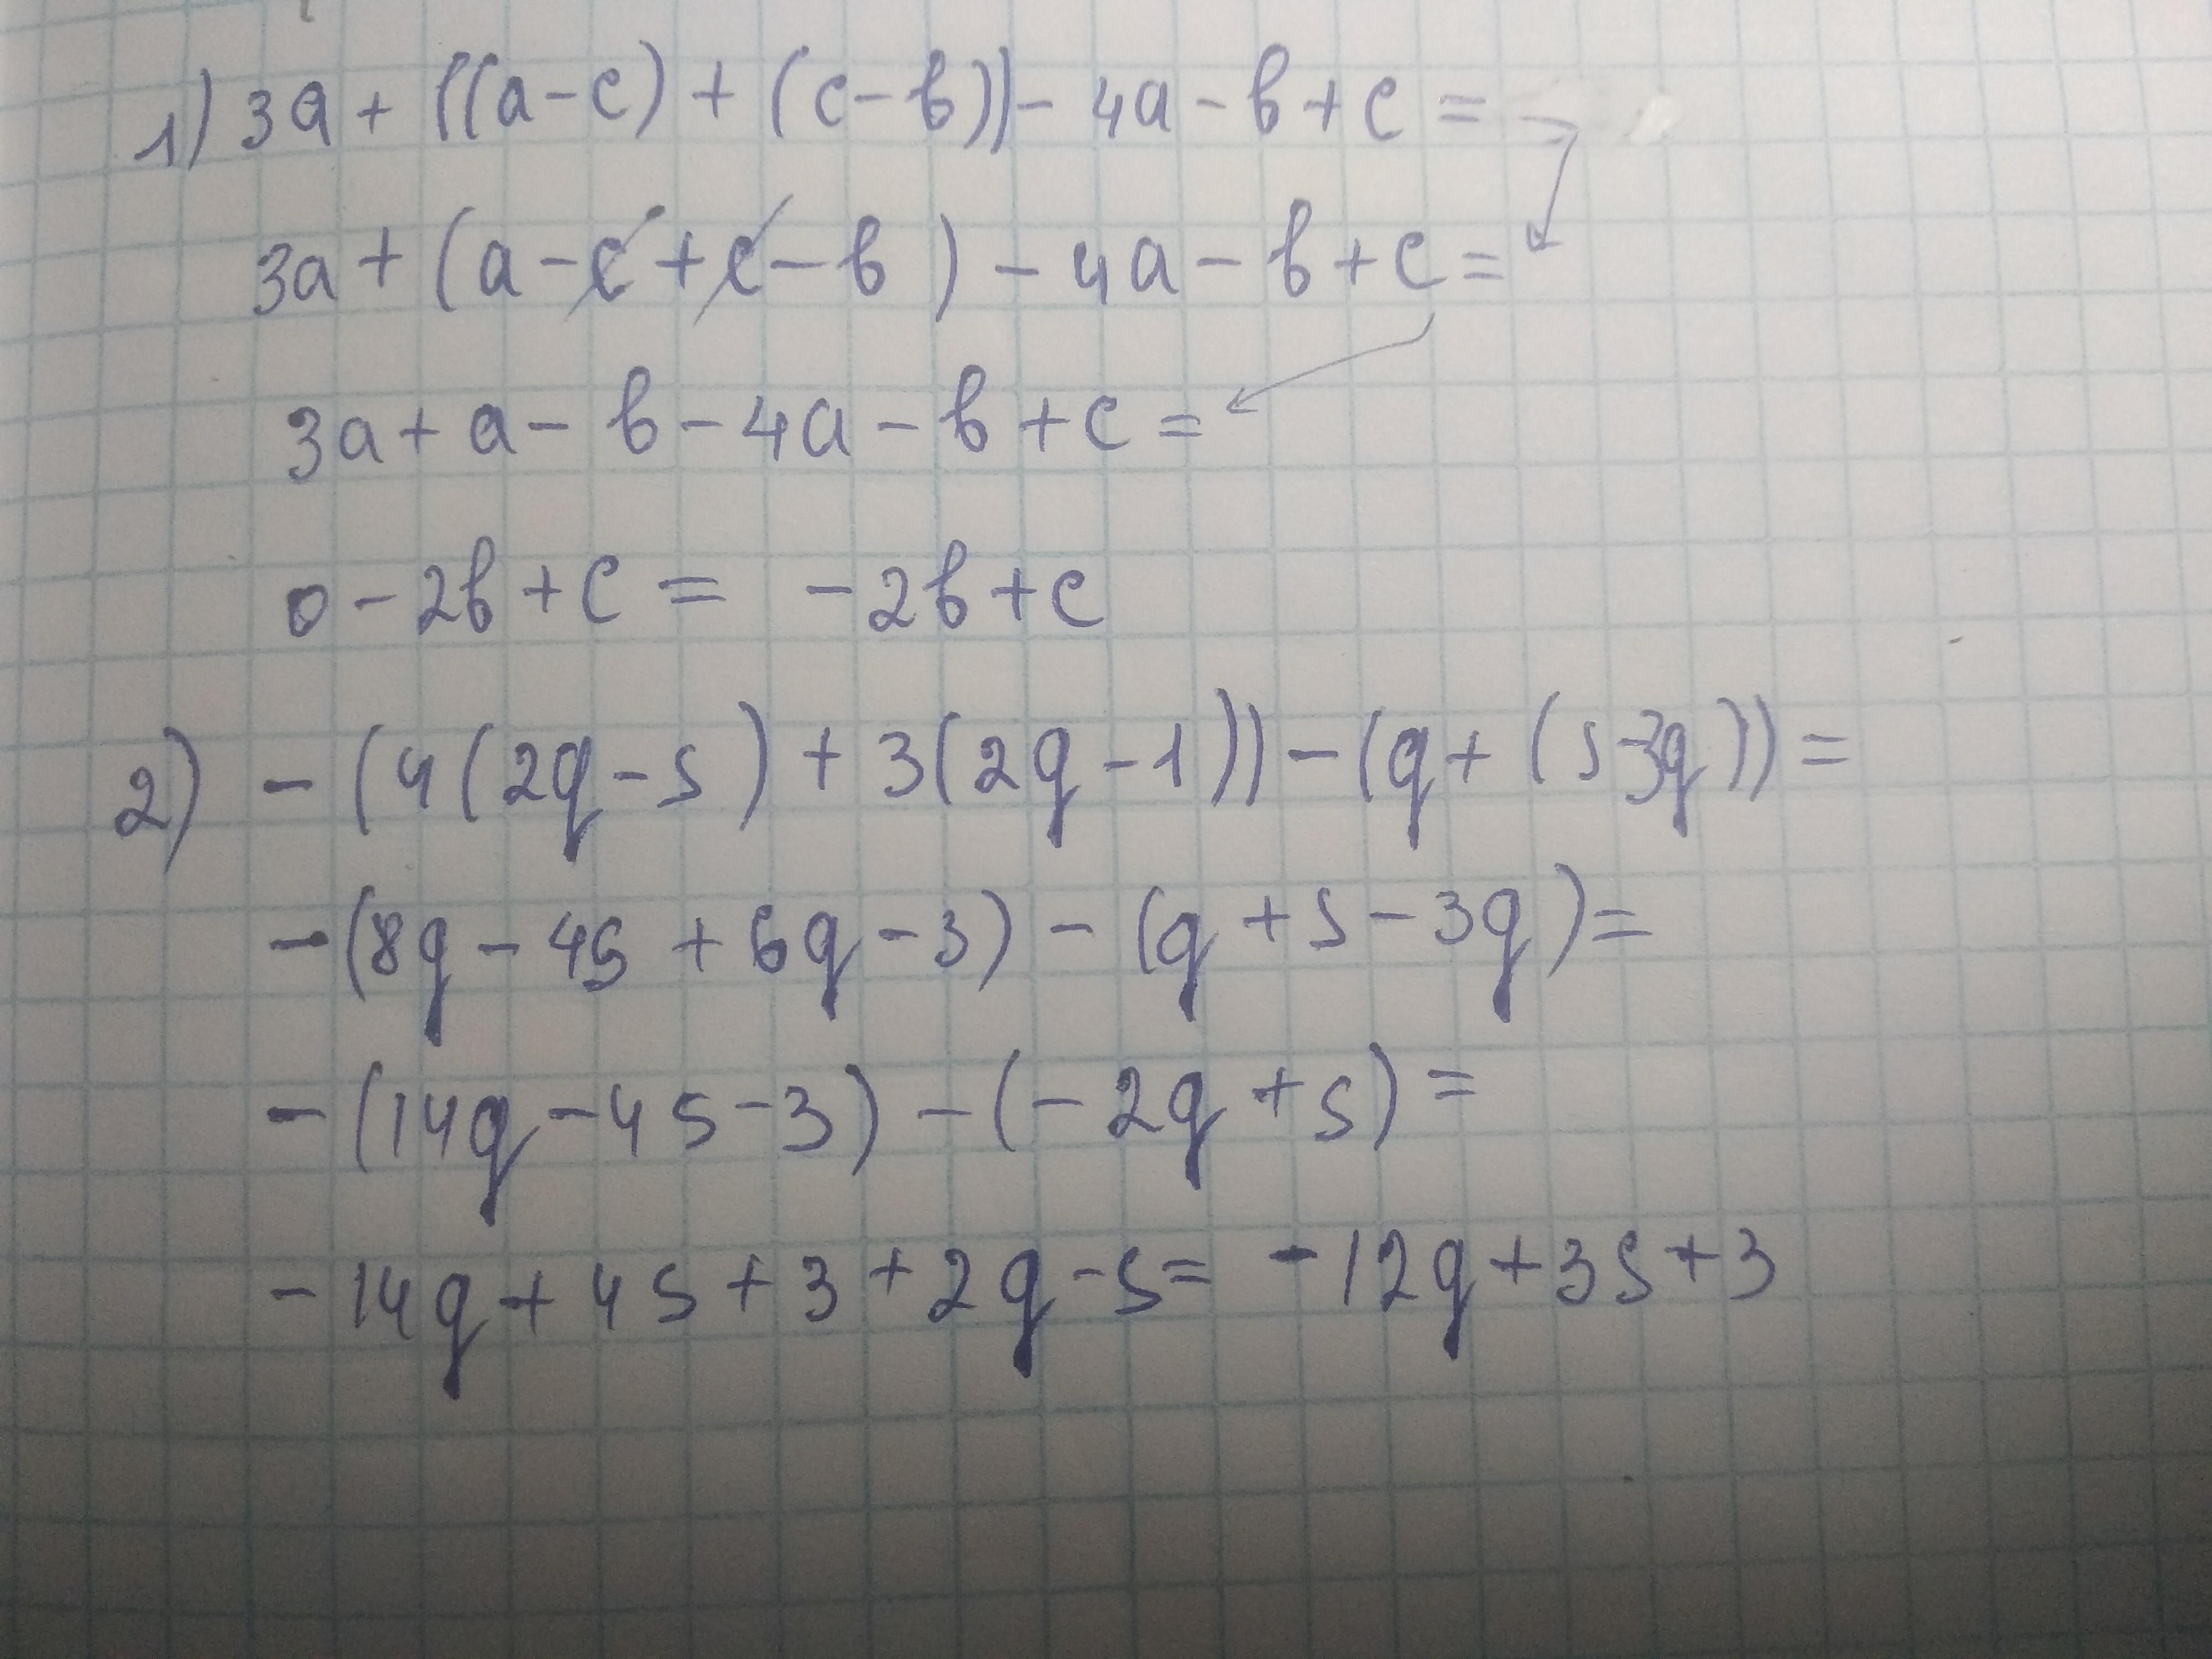 1) 3a + ((a - c) + (c - b)) - 4a - b + c =
3a + (a - c + c - b) - 4a - b + c =
3a + a - b - 4a - b + c =
0 - 2b + c = - 2b + c
2) - (4(2q - s) + 3(2q - 1)) - (q + (s - 3q)) =
- (8q - 4s + 6q - 3) - (q + s - 3q) =
- (14q - 4s - 3) - (- 2q + s) =
- 14q + 4s + 3 + 2q - s = - 12q + 3s + 3